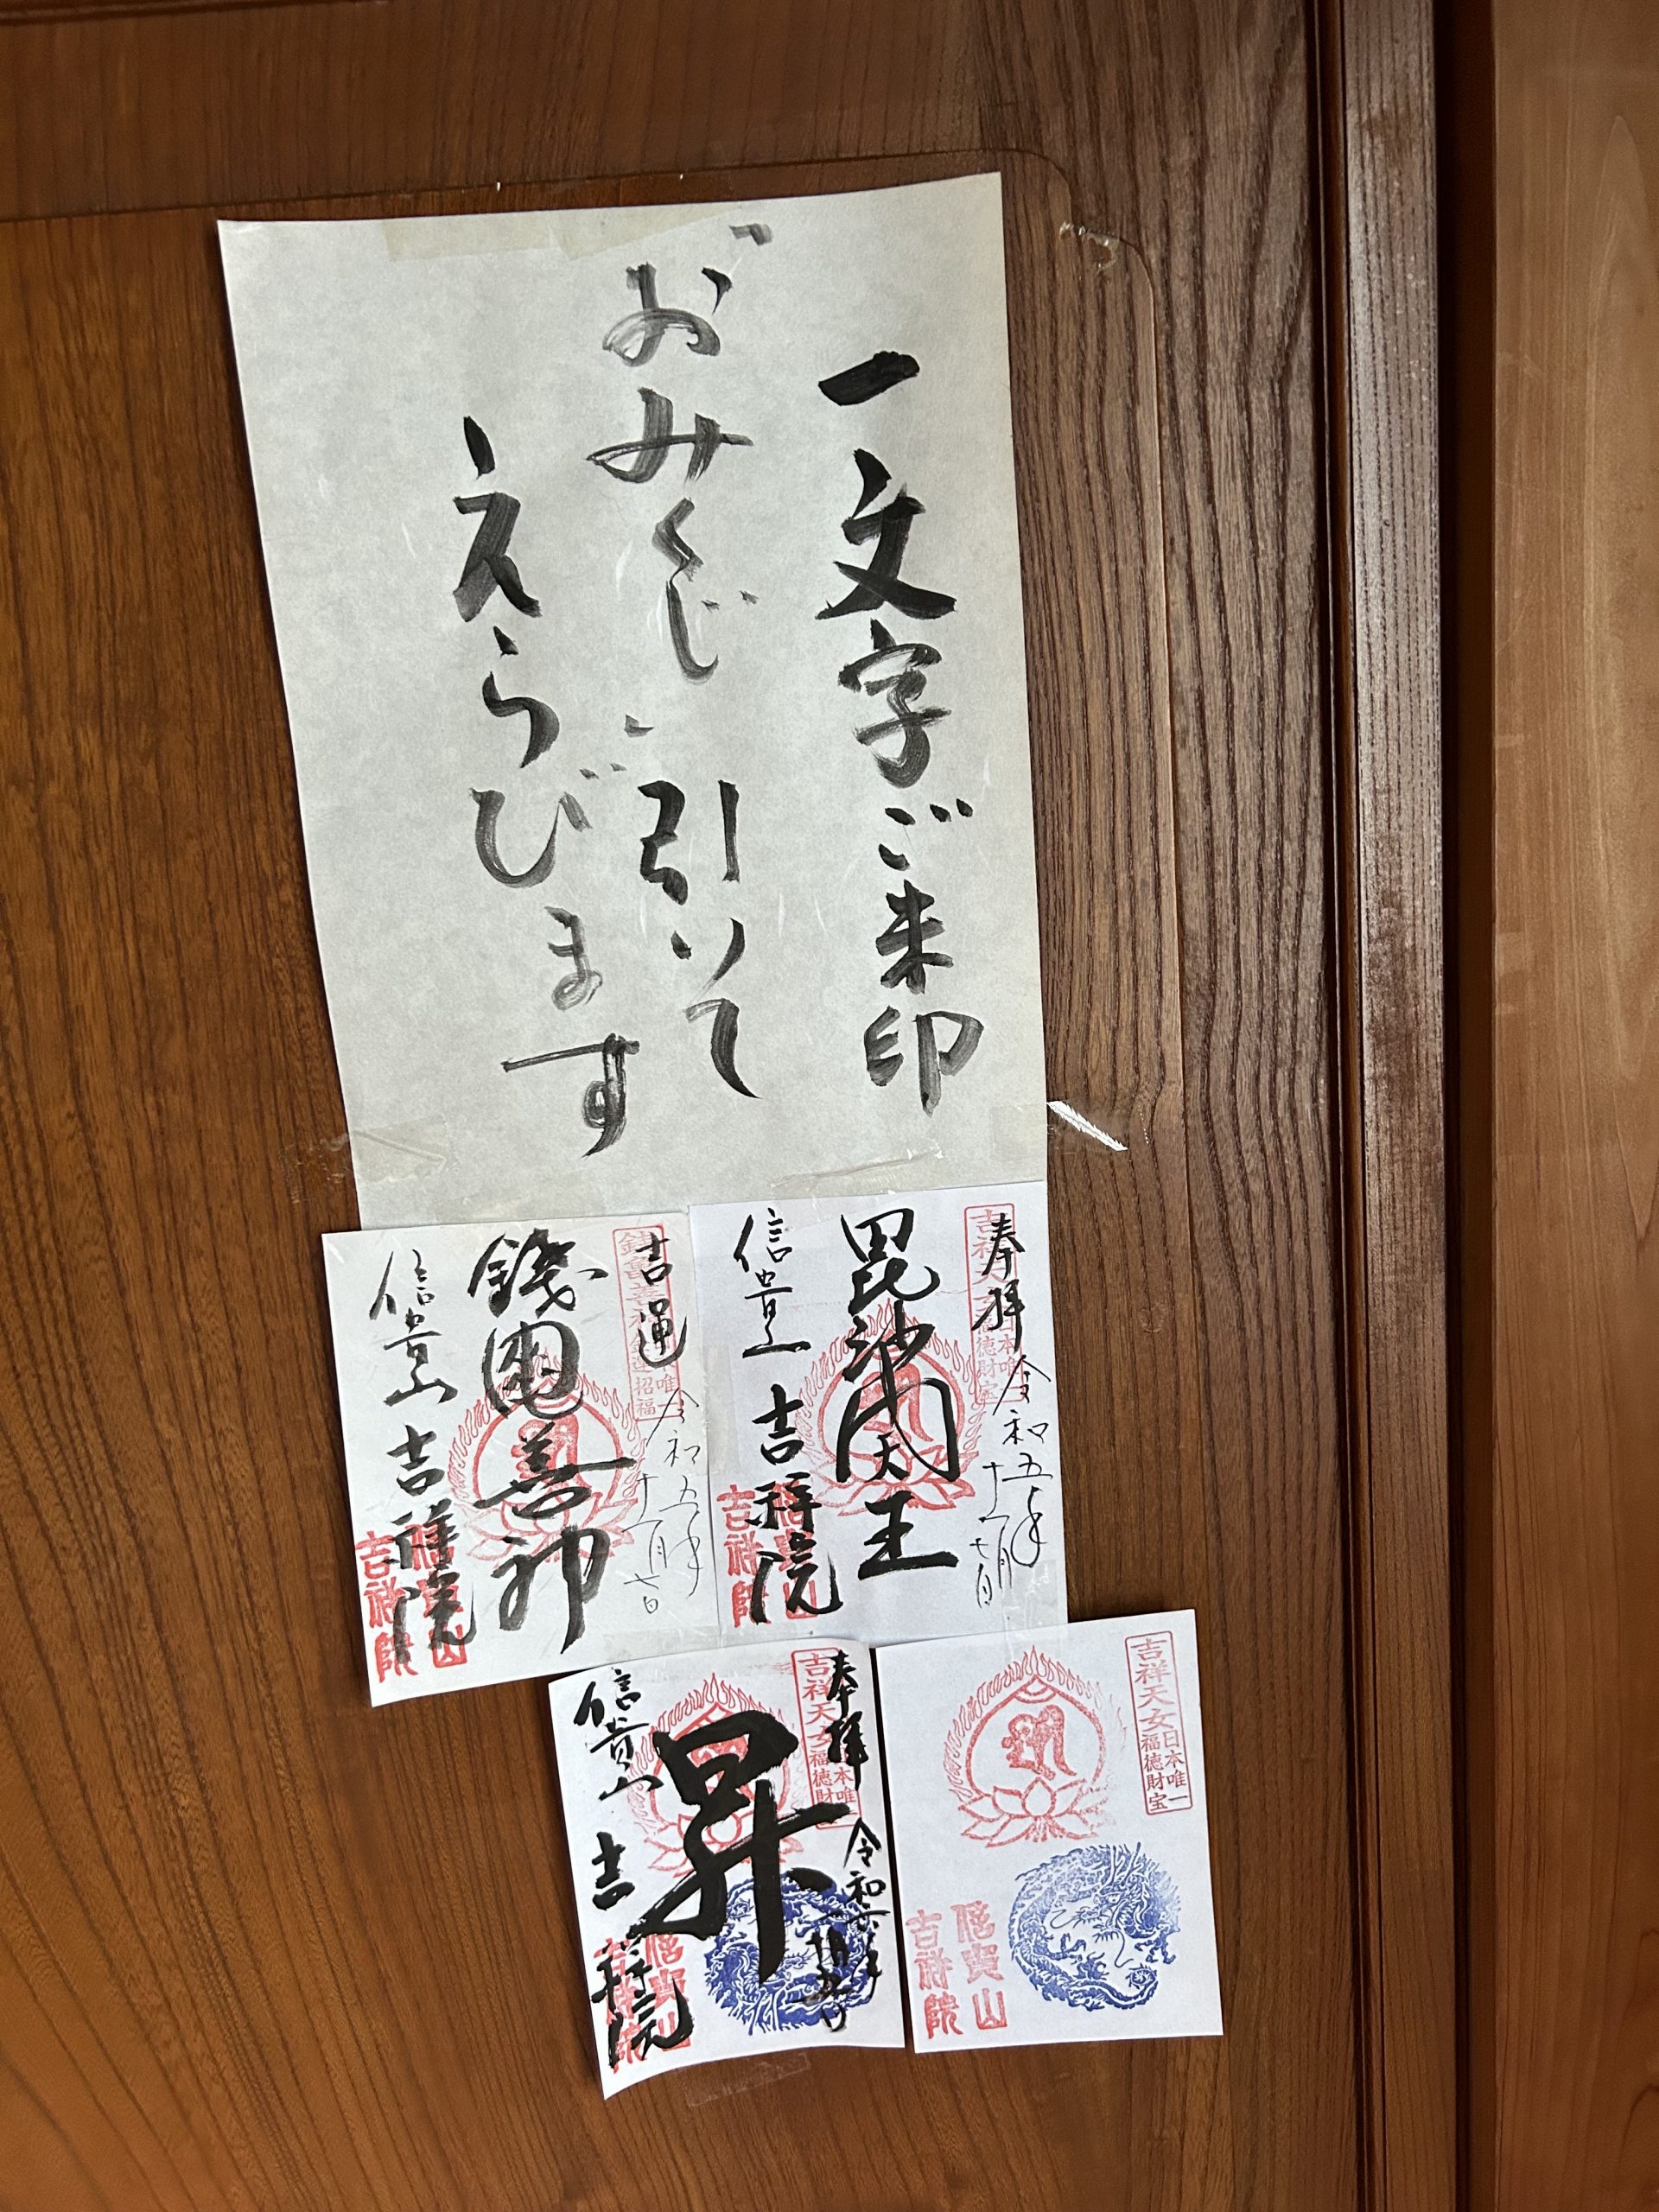 一文字ご朱印
おみくじ引いて
えらびます
奉拝
令和五年
十一月七日
毘沙門天王
信貴山
吉祥院
吉運
令和五年
十一月七日
銭亀善神
信貴山
吉祥院
奉拝
令和六年
昇
信貴山
吉祥院
吉祥天女
日本唯一
福徳財宝
信貴山
吉祥院